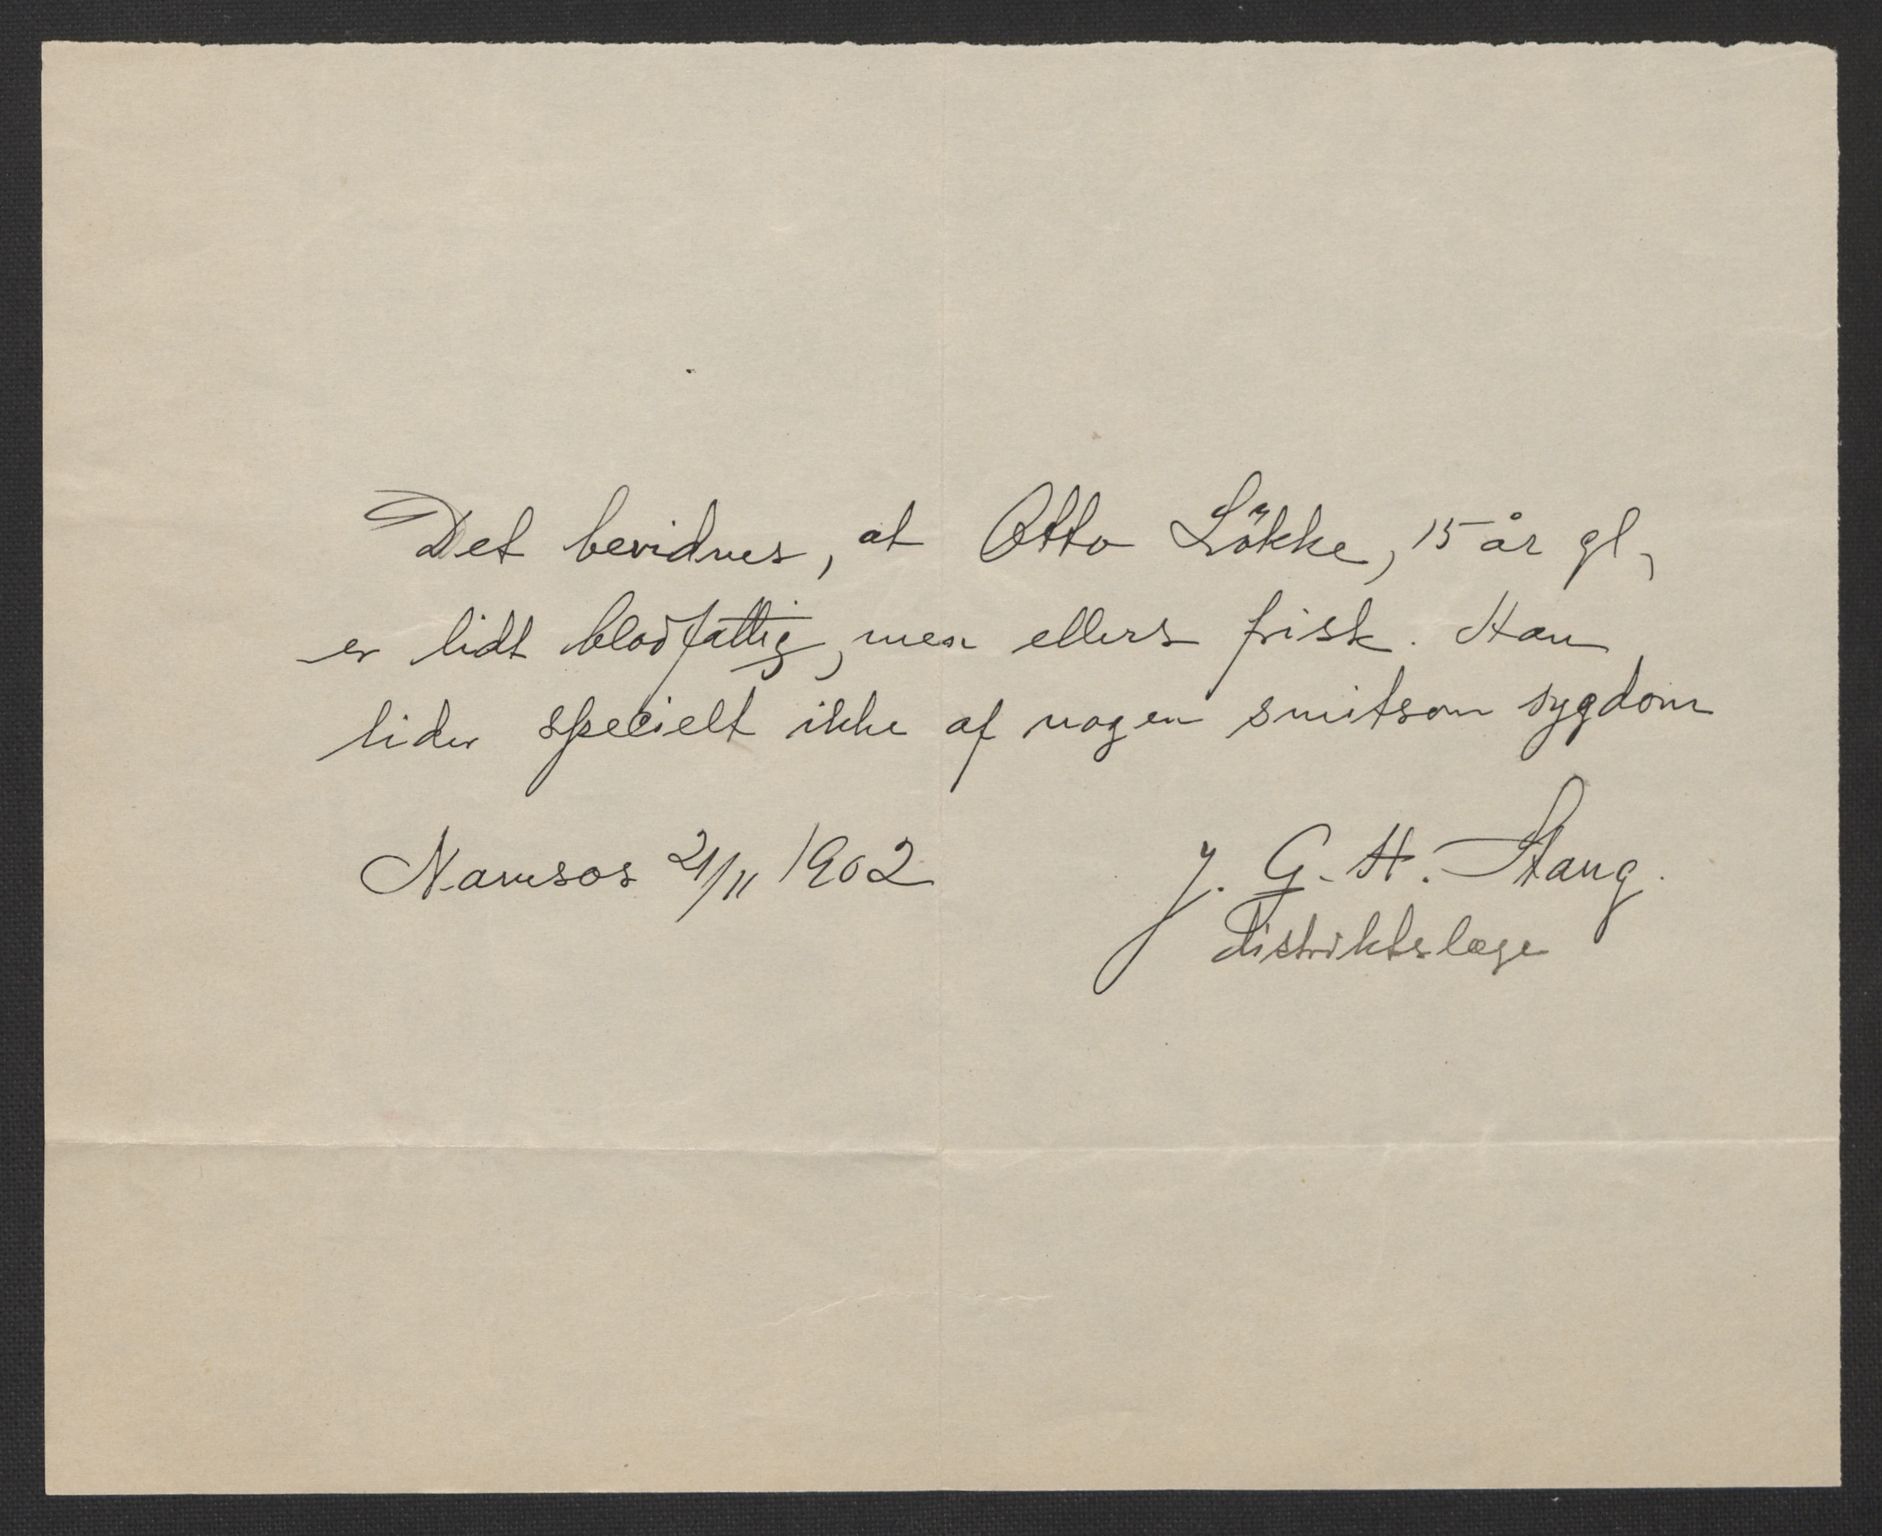 Det bevidnes, at Otto Lökke, 15 år gl,
er lidt blodfattig, men ellers frisk. Han
lider specielt ikke af nogen smitsom sygdom
Namsos 21/11 1902
J. G. H. Stang.
distriktslæge